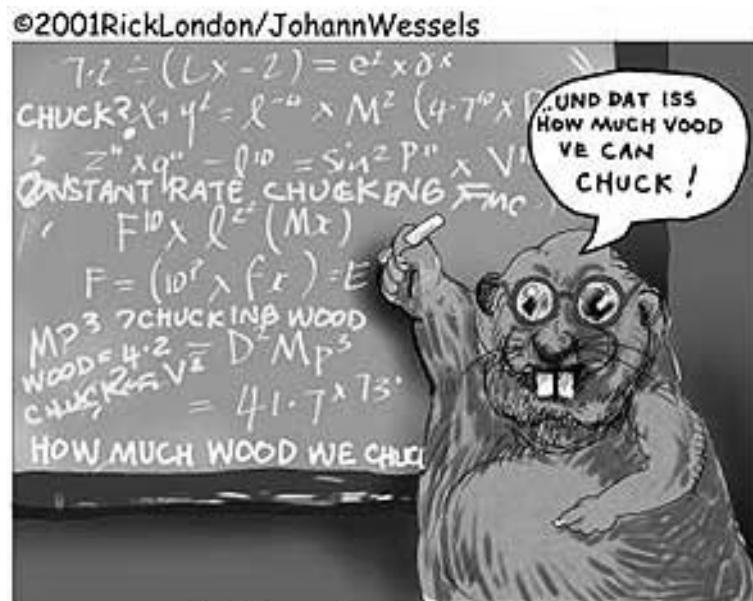 ©2001RickLondon/JohannWessels
7.2 ÷ (Lx - 2) = e² x
CHUCK? X + y² = l⁻¹⁰ x M² (4.7¹⁰ x
z" x q" = l¹⁰ = sin² P" x V
CONSTANT RATE CHUCKING
F¹⁰ x l²² (Mx)
F = (10² x fx) = E
MP³ ?CHUCKING WOOD
WOOD = 4.2 = D² Mp³
CHUCK
= 41.7 x 73°
HOW MUCH WOOD WE CHUC
..UND DAT ISS
HOW MUCH VOOD
VE CAN
CHUCK!